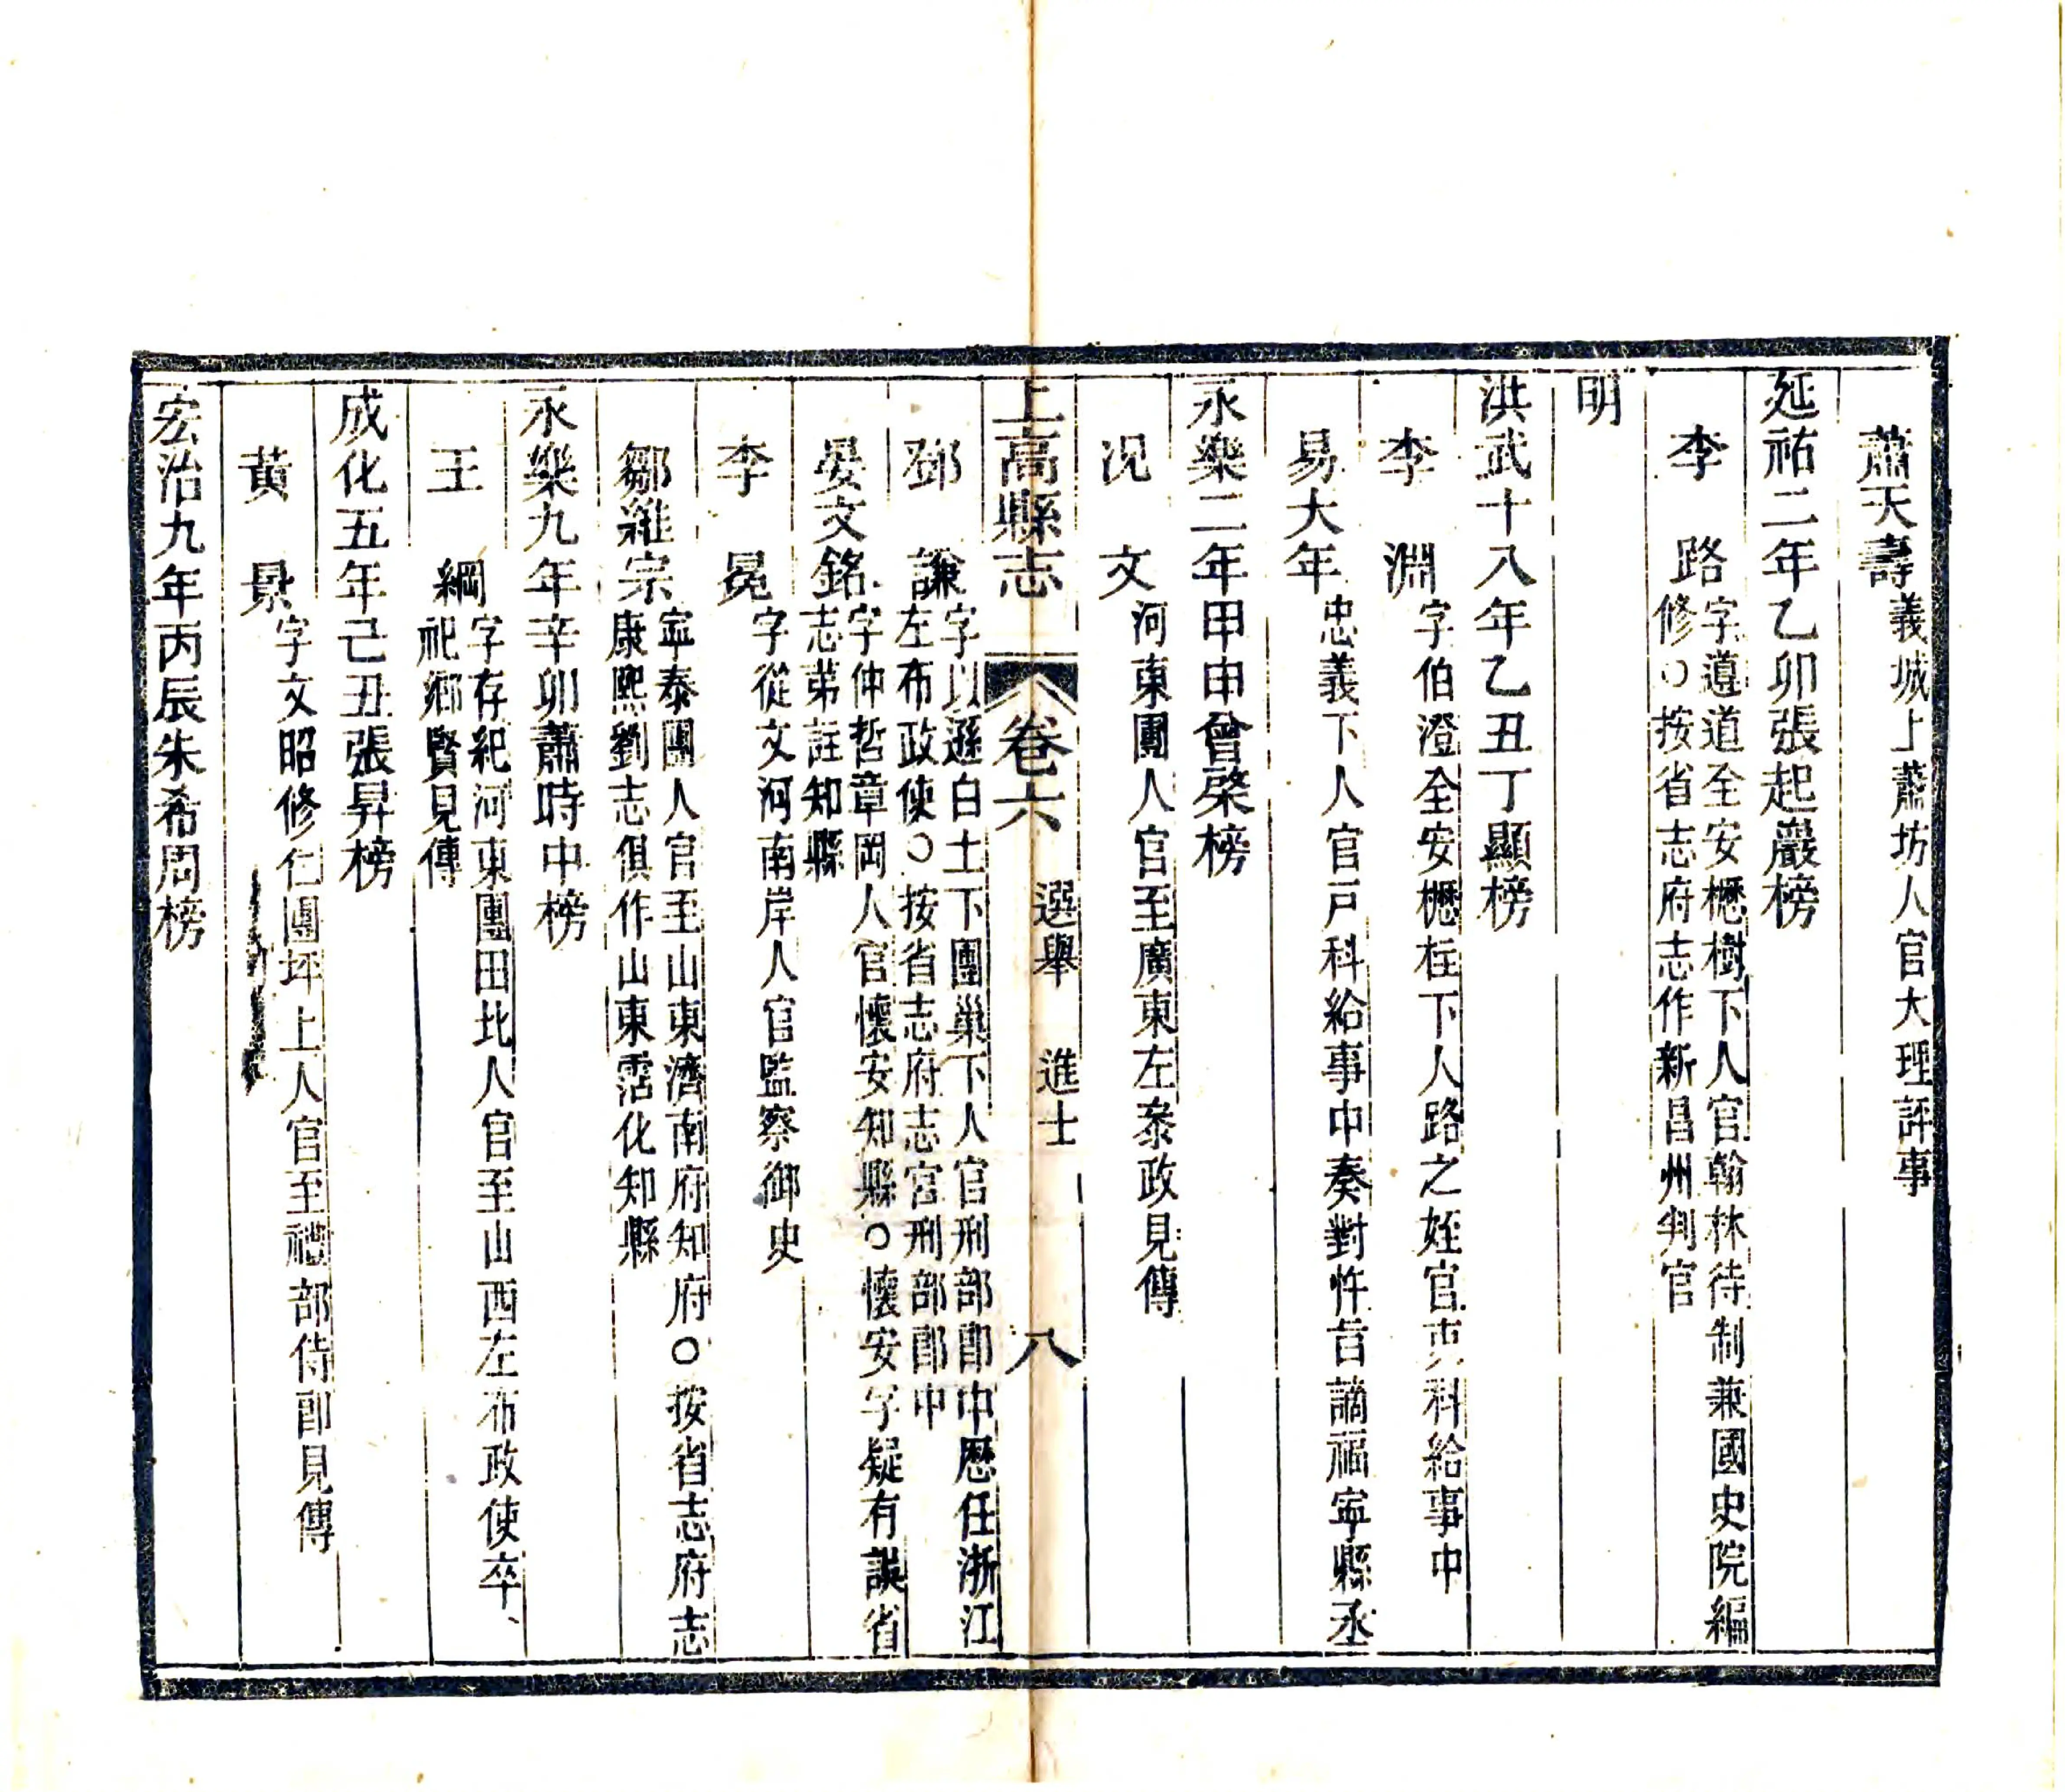 蕭天壽義城上蕭坊人官大理評事
延祐二年乙卯張起巖榜
李　路字遵道全安櫪樹下人官翰林待制兼國史院編
修○按省志府志作新昌州判官
明
洪武十八年乙丑丁顯榜
李　淵字伯澄全安櫪柱下人路之姪官吏科給事中
易大年忠義下人官戸科給事中奏對忤旨謫福寧縣丞
永樂二年甲申曾棨榜
況　文河東團人官至廣東左叅政見傳
上高縣志　卷六　選舉　進士　八
鄧　謙字以遜白土下團巢下人官刑部郎中歷任浙江
左布政使○按省志府志官刑部郎中
晏文銘字仲哲章岡人官懷安知縣○懷安字疑有誤省
志第註知縣
李　冕字從文河南岸人官監察御史
鄒維宗寧泰團人官至山東濟南府知府○按省志府志
康熙劉志俱作山東霑化知縣
永樂九年辛卯蕭時中榜
王　綱字存紀河東團田北人官至山西左布政使卒、
祀鄉賢見傳
成化五年己丑張昇榜
黃　景字文昭修仁團坪上人官至禮部侍郎見傳
宏治九年丙辰朱希周榜